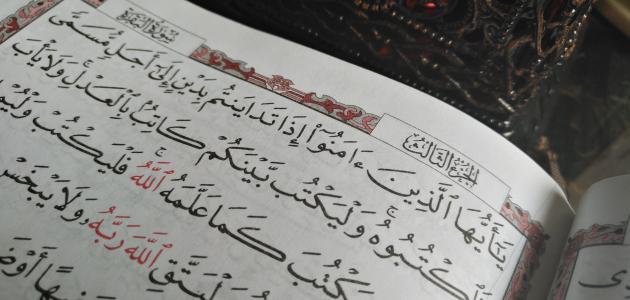 سُورَةُ البَقَرَةِ
الجُزْءُ الثَّالِثُ
يَٰٓأَيُّهَا ٱلَّذِينَ ءَامَنُوٓاْ إِذَا تَدَايَنتُم بِدَيْنٍ إِلَىٰٓ أَجَلٍ مُّسَمًّى
فَٱكْتُبُوهُ ۚ وَلْيَكْتُب بَّيْنَكُمْ كَاتِبٌۢ بِٱلْعَدْلِ ۚ وَلَا يَأْبَ
يَكْتُبَ كَمَا عَلَّمَهُ ٱللَّهُ ۚ فَلْيَكْتُبْ
وَلْيَتَّقِ ٱللَّهَ رَبَّهُۥ وَلَا يَبْخَسْ